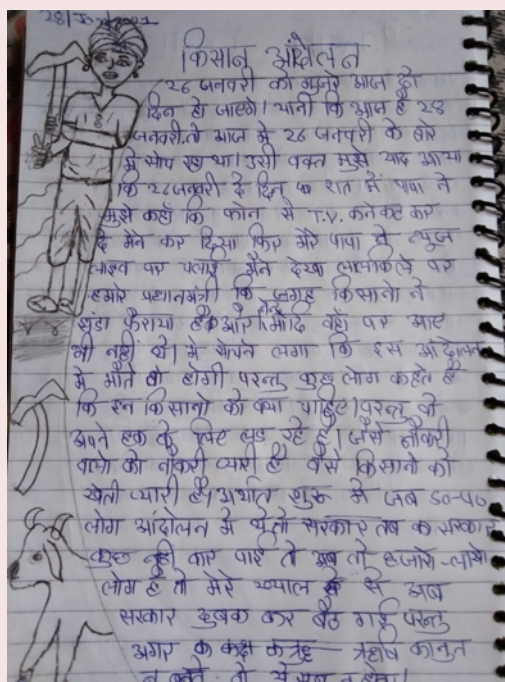 28/Jan/2021
किसान आंदोलन
26 जनवरी को गुजरे आज दो
दिन हो जाएगे। यानी कि आज है 28
जनवरी तो आज मे 26 जनवरी के बारे
मे सोच रहा था। उसी वक्त मुझे याद आया
कि 26 जनवरी दे दिन रात में पापा ने
मुझे कहाँ कि फोन से T.V. कनेकट कर
दे मेने कर दिया फिर मेरे पापा ने न्यूज
लाइव पर चलाई मैने देखा लालकिले पर
हमारे प्रधानमंत्री कि जगह किसानो ने
झंडा फैराया है और नरेन्द्र मोदि वहाँ पर आए
भी नहीं थे। मे सोचने लगा कि इस आंदोलन
मे मौते तो होगी परन्तु कुछ लोग कहेते है
कि इन किसानो को क्या चाहिए। परन्तु वो
अपने हक के लिए लड रहे है। जैसे नौकरी
वालो को नौकरी प्यारी है वैसे किसानो को
खेती प्यारी है। अर्थात शुरू मे जब 50-40
लोग आंदोलन मे थे तो सरकार तब क सरकार
कुछ नही कर पाई तो अब तो हजारो-लाखो
लोग है तो मेरे ख्याल से अब
सरकार दुबक कर बैठ गई परन्तु
अगर कानुन
न तो ये सब न होता।